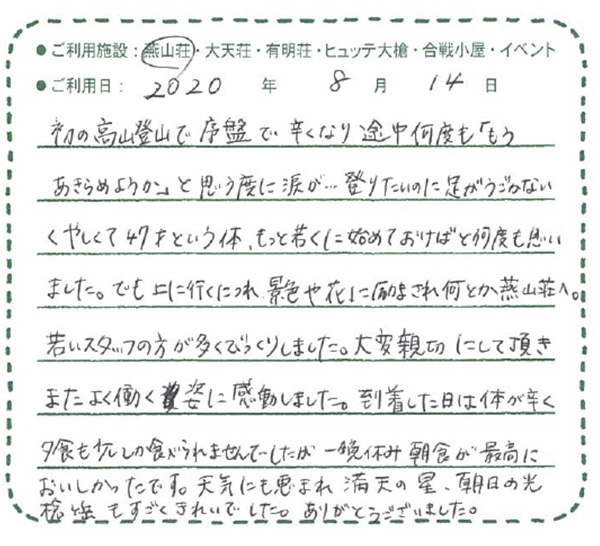 ●ご利用施設：燕山荘・大天荘・有明荘・ヒュッテ大槍・合戦小屋・イベント
●ご利用日： 2020 年 8 月 14 日
初の高山登山で序盤で辛くなり途中何度も「もう
あきらめようか」と思う度に涙が…登りたいのに足がうごかない
くやしくて47才という体、もっと若くに始めておけばと何度も思い
ました。でも上に行くにつれ景色や花に励まされ何とか燕山荘へ。
若いスタッフの方が多くびっくりしました。大変親切にして頂き
またよく働く姿に感動しました。到着した日は体が辛く
夕食も少ししか食べられませんでしたが一晩休み朝食が最高に
おいしかったです。天気にも恵まれ満天の星、朝日の光
もすごくきれいでした。ありがとうございました。